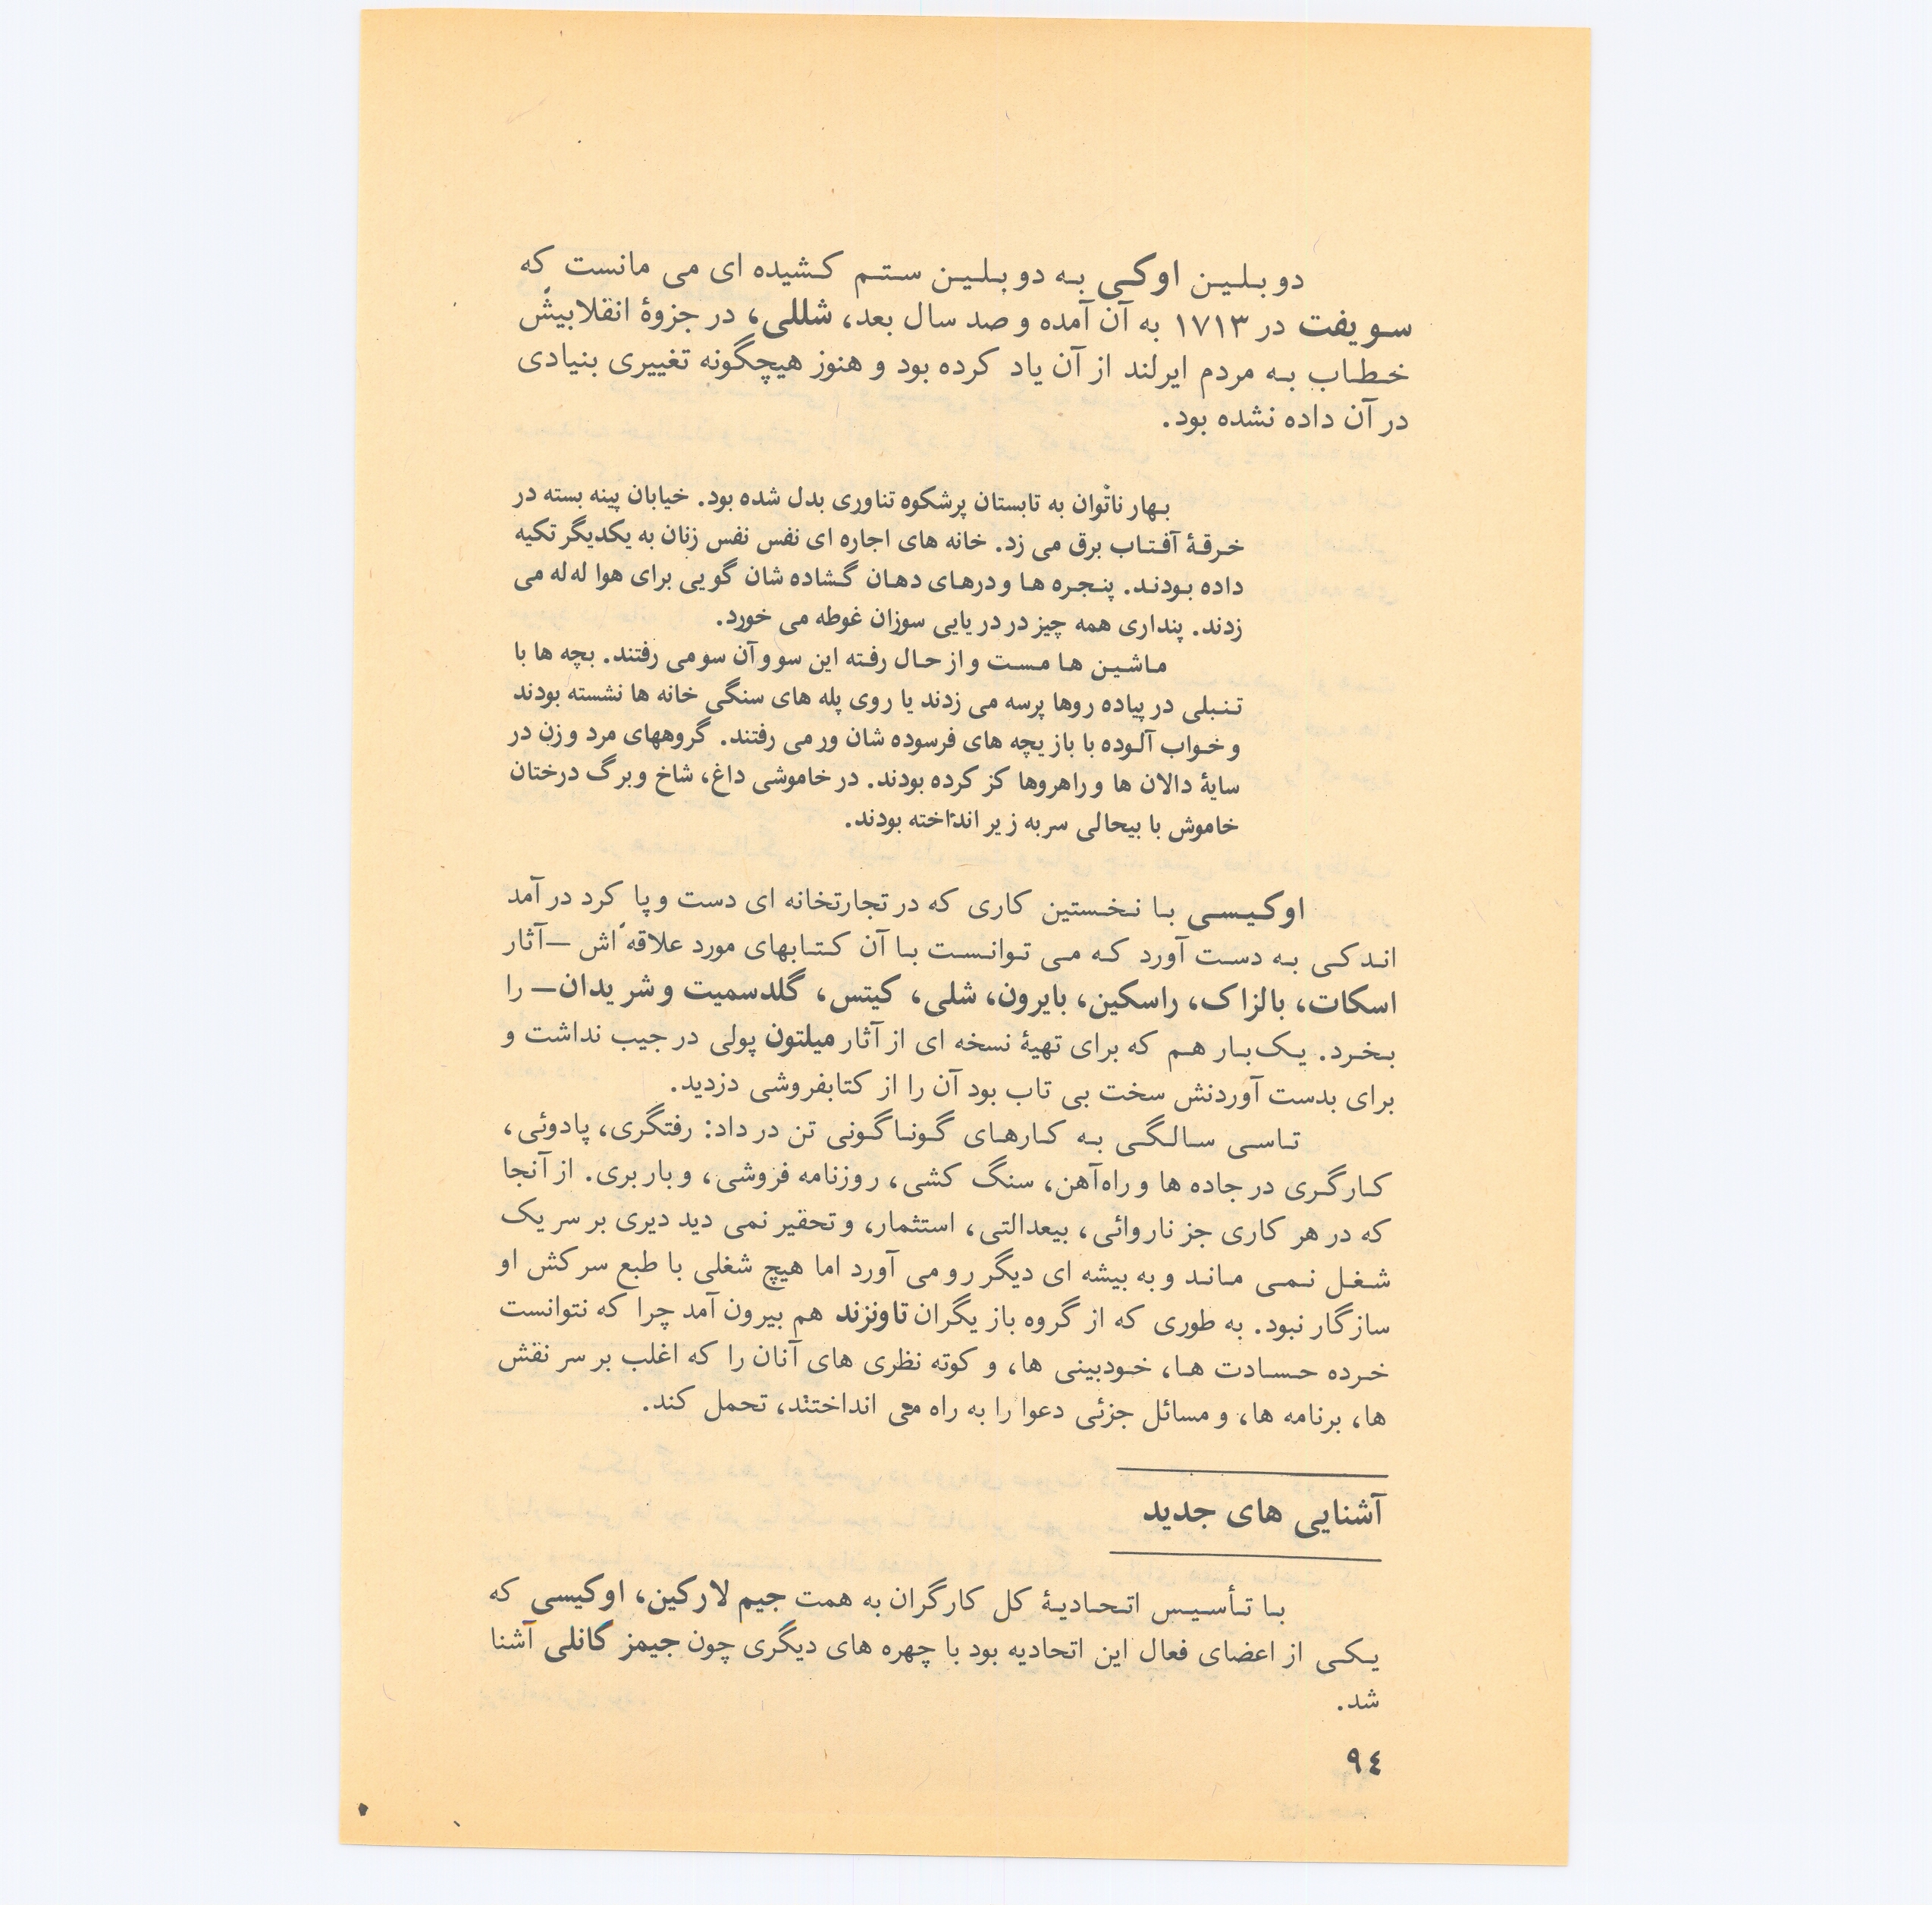 دوبلین اوکی به دوبلین ستم کشیده ای می مانست که
سویفت در ۱۷۱۳ به آن آمده و صد سال بعد، شللی، در جزوۀ انقلابیش
خطاب به مردم ایرلند از آن یاد کرده بود و هنوز هیچگونه تغییری بنیادی
در آن داده نشده بود.
بهار ناتوان به تابستان پرشکوه تناوری بدل شده بود. خیابان پینه بسته در
خرقۀ آفتاب برق می زد. خانه های اجاره ای نفس نفس زنان به یکدیگر تکیه
داده بودند. پنجره ها و درهای دهان گشاده شان گویی برای هوا له له می
زدند. پنداری همه چیز در دریایی سوزان غوطه می خورد.
ماشین ها مست و از حال رفته این سو و آن سو می رفتند. بچه ها با
تنبلی در پیاده روها پرسه می زدند یا روی پله های سنگی خانه ها نشسته بودند
و خواب آلوده با بازیچه های فرسوده شان ور می رفتند. گروههای مرد و زن در
سایۀ دالان ها و راهروها کز کرده بودند. در خاموشی داغ، شاخ و برگ درختان
خاموش با بیحالی سر به زیر انداخته بودند.
اوکیسی با نخستین کاری که در تجارتخانه ای دست و پا کرد درآمد
اندکی به دست آورد که می توانست با آن کتابهای مورد علاقه اش —آثار
اسکات، بالزاک، راسکین، بایرون، شلی، کیتس، گلدسمیت و شریدان— را
بخرد. یک‌بار هم که برای تهیۀ نسخه ای از آثار میلتون پولی در جیب نداشت و
برای بدست آوردنش سخت بی تاب بود آن را از کتابفروشی دزدید.
تاسی سالگی به کارهای گوناگونی تن در داد: رفتگری، پادوئی،
کارگری در جاده ها و راه‌آهن، سنگ کشی، روزنامه فروشی، و باربری. از آنجا
که در هر کاری جز ناروائی، بیعدالتی، استثمار، و تحقیر نمی دید دیری بر سر یک
شغل نمی ماند و به بیشه ای دیگر رو می آورد اما هیچ شغلی با طبع سرکش او
سازگار نبود. به طوری که از گروه بازیگران تاونزند هم بیرون آمد چرا که نتوانست
خرده حسادت ها، خودبینی ها، و کوته نظری های آنان را که اغلب بر سر نقش
ها، برنامه ها، و مسائل جزئی دعوا را به راه می انداختند، تحمل کند.
آشنایی های جدید
با تأسیس اتحادیۀ کل کارگران به همت جیم لارکین، اوکیسی که
یکی از اعضای فعال این اتحادیه بود با چهره های دیگری چون جیمز گانلی آشنا
شد.
۹٤